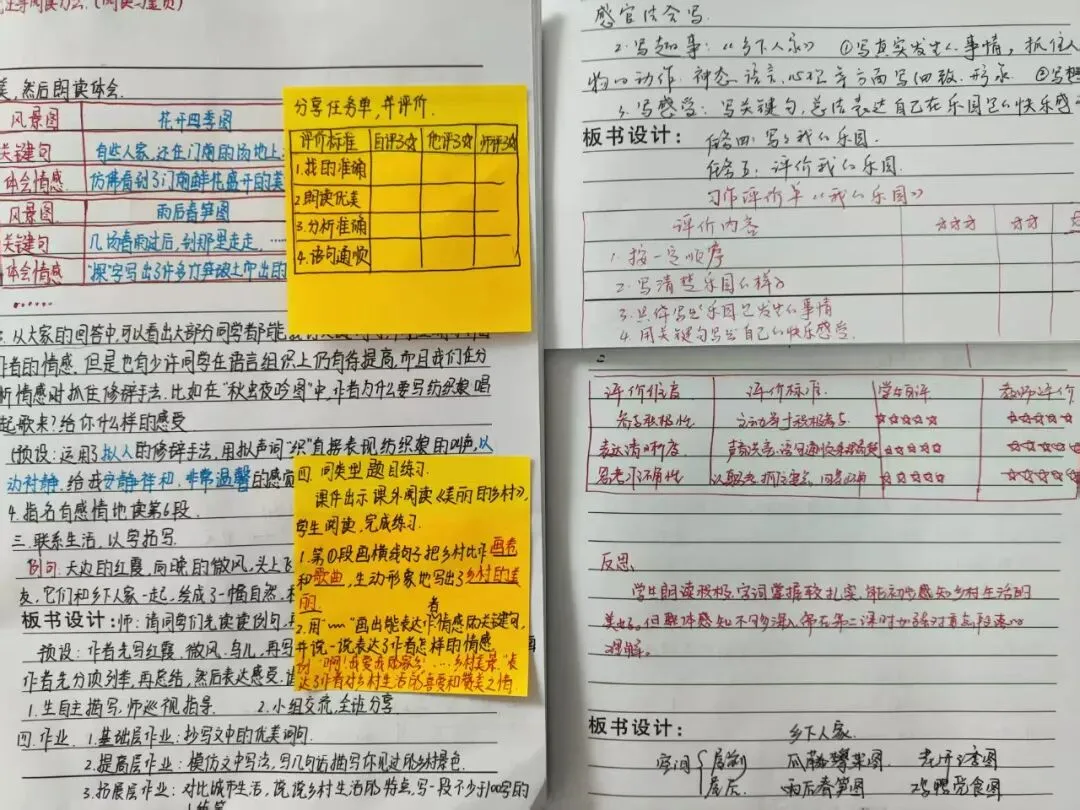 美,然后朗读体会.
风景图 花开四季图
关键句 有些人家,还在门前的场地上
体会情感 仿佛看到了门前鲜花盛开的美
风景图 雨后春笋图
关键句 几场春雨过后,到那里走走,……
体会情感 "探"字写出了许多竹笋破土而出的
……
3. 从大家的回答中可以看出大部分同学都能
作者的情感,但是也有少许同学在语言组织上仍有待提高,而且我们在分
析情感时抓住修辞手法.比如在"秋虫夜吟图"中,作者为什么要写纺织娘唱
起歌来?给你什么样的感受
(预设:运用了拟人的修辞手法,用拟声词"织"直接表现纺织娘的叫声,以
动衬静,给我安静祥和、非常温馨的感
4. 指名有感情地读第6段.
三.联系生活,以学拓写
例句:天边的红霞,向晚的微风,头上飞
友,它们和乡下人家一起,绘成了一幅自然、
板书设计:师:请同学们先读读例句,
预设:作者先写红霞、微风、鸟儿,再写
作者先分项列举,再总结,然后表达感受.
1. 生自主描写,师巡视指导. 2. 小组交流,全班分享.
四.作业. 1. 基础层作业:抄写文中的优美词句.
2. 提高层作业:模仿文中写法,写几句话描写你见过的乡村景色.
3. 拓展层作业:对比城市生活,说说乡村生活的特点,写一段不少于100字的
分享任务单,并评价.
评价标准 自评3☆ 他评3☆ 师评3☆
1. 找的准确
2. 朗读优美
3. 分析准确
4. 语句通顺
四. 同类型题目练习.
课件出示课外阅读《美丽的乡村》,
学生阅读,完成练习.
1. 第①段画横线句子把乡村比作画卷
和歌曲,生动形象地写出了乡村的美
丽.
2. 用"﹏"画出能表达作者情感的关键句,
并说一说表达了作者怎样的情感.
……乡村美景"表
达了作者对乡村生活的喜爱和赞美之情.
感官法会写.
2. 写趣事:《乡下人家》 ①写真实发生的事情,抓住人
物的动作、神态、语言、心理等方面写细致、形象. ②
3. 写感受:写关键句,总结表达自己在乐园里的快乐感
板书设计: 任务四:写写我的乐园.
任务五:评价我的乐园.
习作评价单《我的乐园》
评价内容 ☆☆☆ ☆☆
1. 按一定顺序
2. 写清楚乐园的样子
3. 具体写出乐园里发生的事情
4. 用关键句写出自己的快乐感受.
评价维度 评价标准 学生自评 教师评价
参与积极性 主动举手积极参与 ☆☆☆☆☆ ☆☆☆☆☆
表达清晰度 ☆☆☆☆☆ ☆☆☆☆☆
思考正确性 ☆☆☆☆☆ ☆☆☆☆☆
反思:
学生朗读积极,字词掌握较扎实,能初步感知乡村生活的
美好,但整体感知不够深入,需在第二课时加强对重点段落的
理解。
板书设计: 乡下人家
空间 屋前 瓜藤攀架图
屋后 雨后春笋图 鸡鸭觅食图